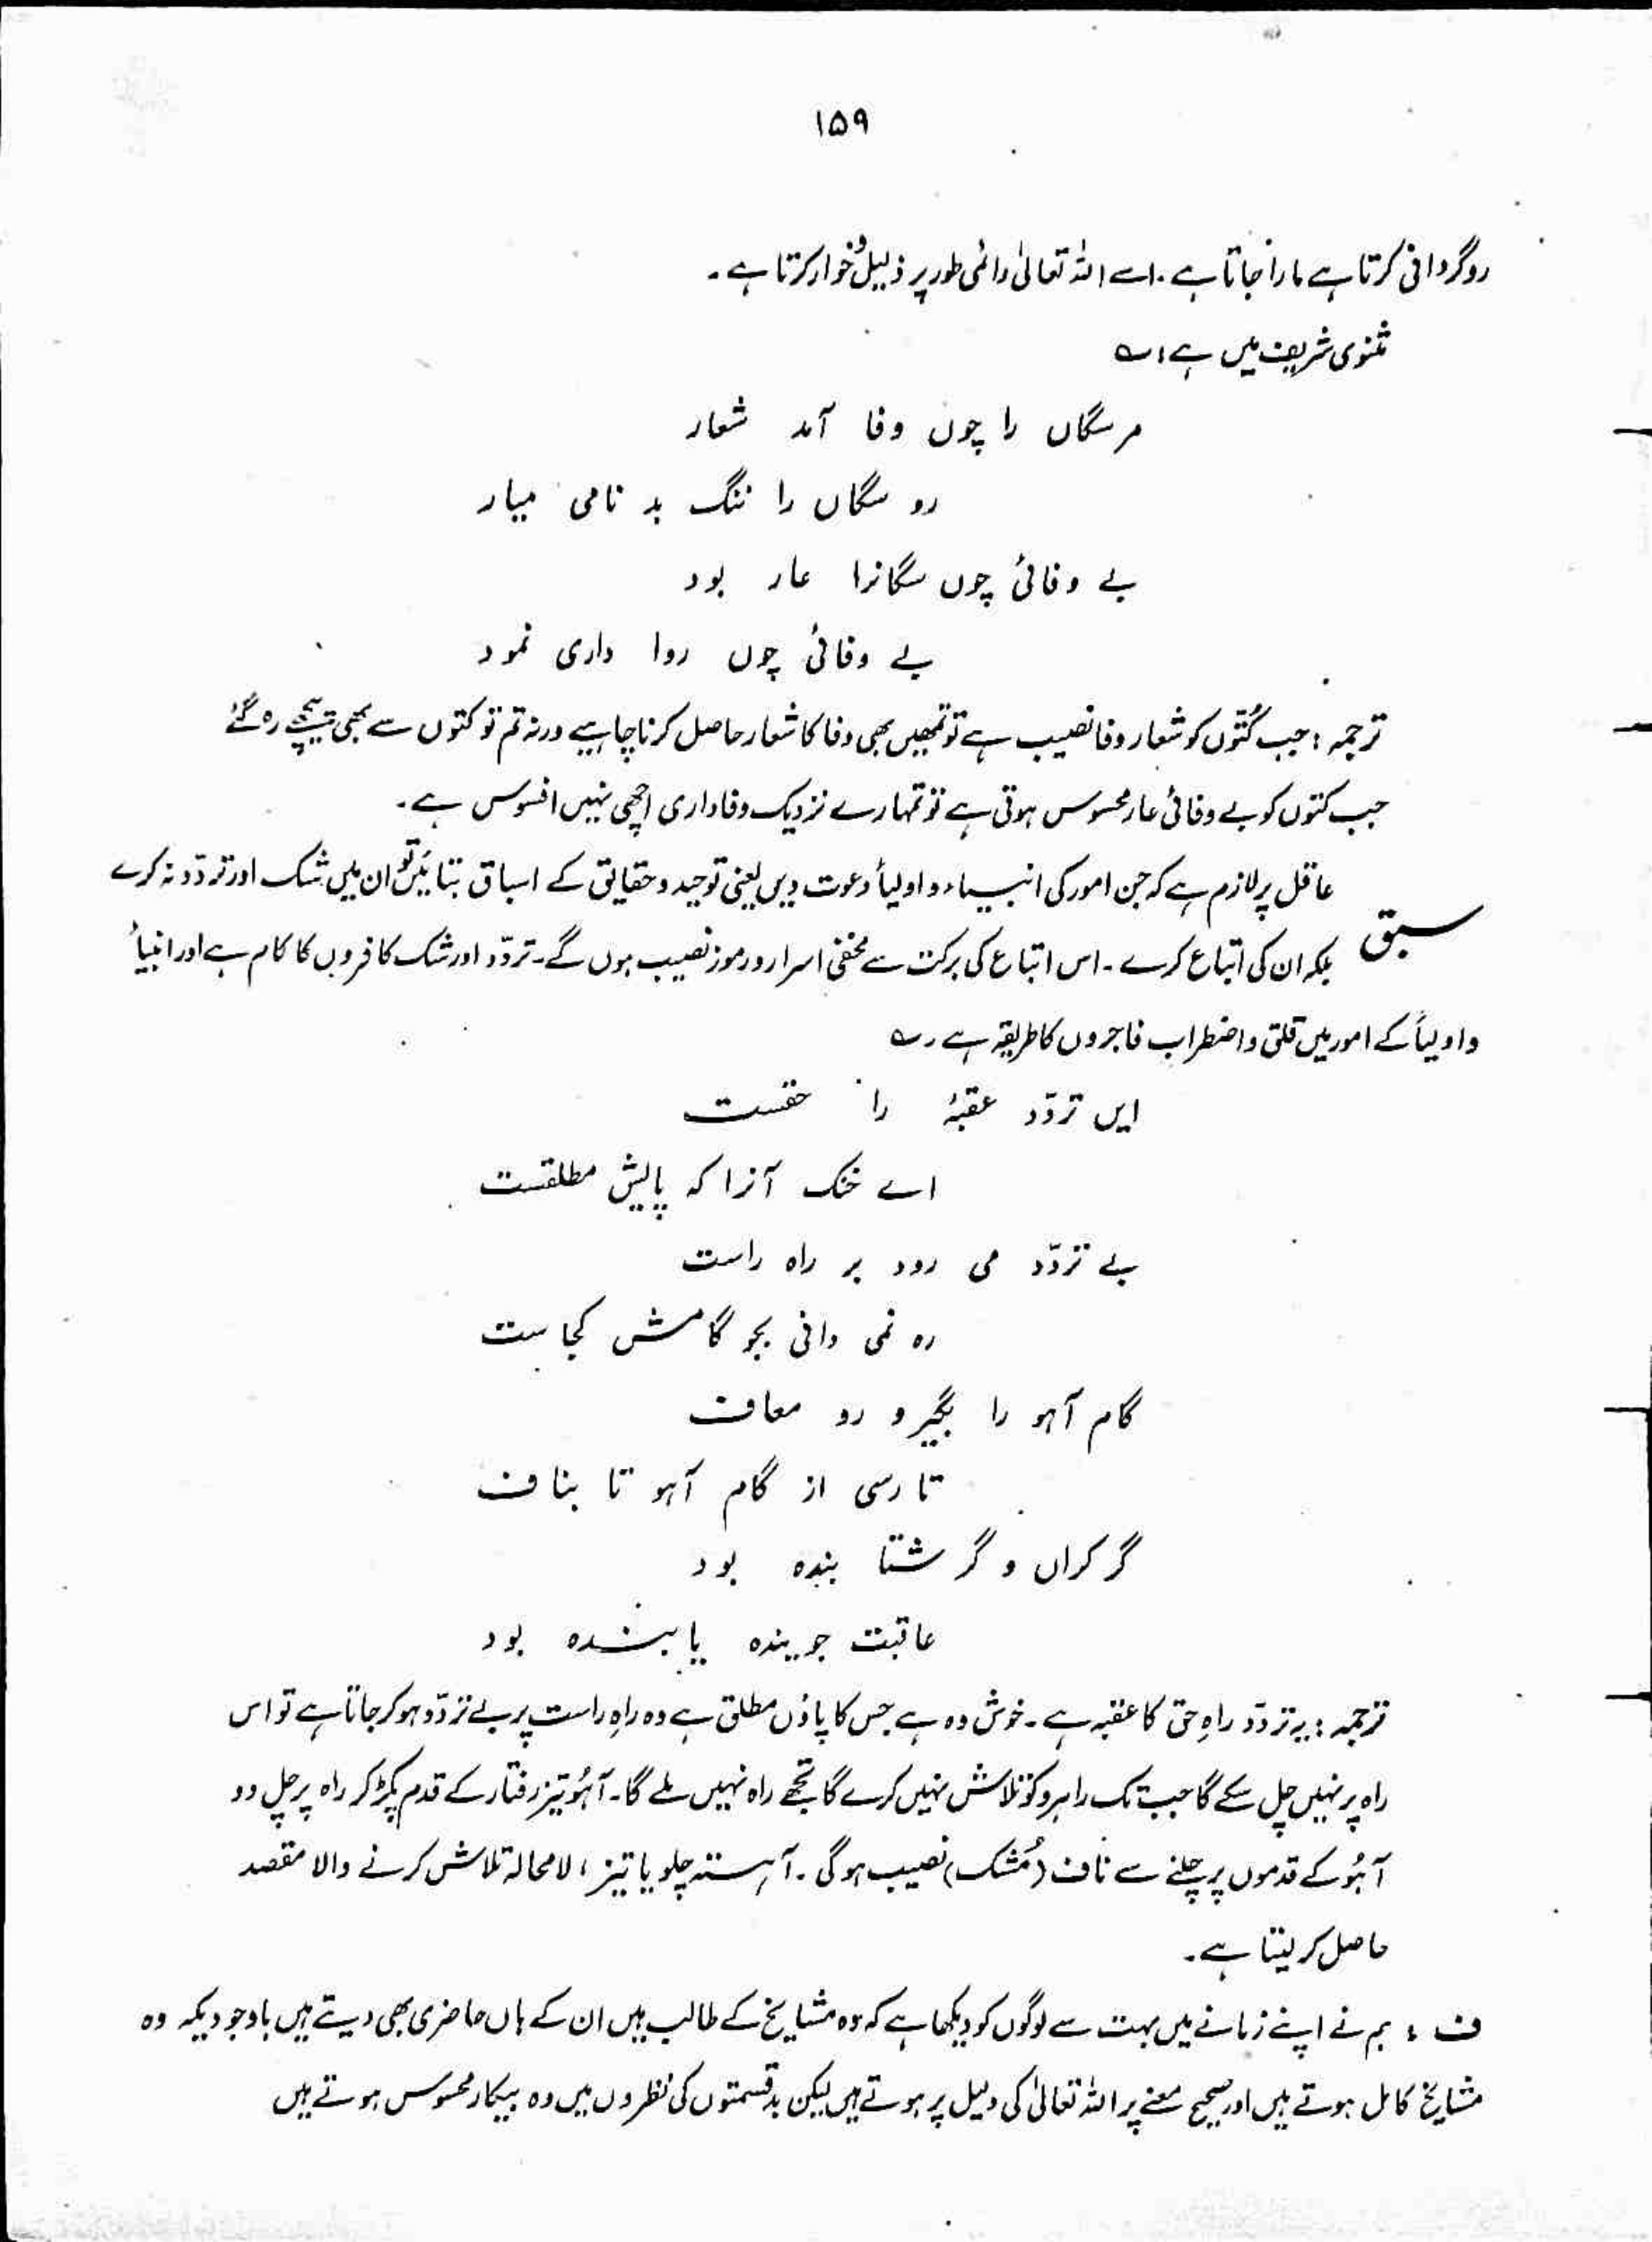 ۱۵۹
روگردانی کرتا ہے مارا جاتا ہے ۔ اسے اللہ تعالیٰ دائمی طور پر ذلیل و خوار کرتا ہے ۔
مثنوی شریف میں ہے : ؎
مر سگاں را چوں وفا آمد شعار
رو سگاں را ننگ بد نامی میار
بے وفائی چوں سگانرا عار بود
بے وفائی چوں روا داری نمود
ترجمہ : جب کُتّوں کو شعار وفا نصیب ہے تو تمھیں بھی وفا کا شعار حاصل کرنا چاہیے ورنہ تم تو کتوں سے بھی پیچھے رہ گئے
جب کتوں کو بے وفائی عار محسوس ہوتی ہے تو تمہارے نزدیک وفاداری اچھی نہیں افسوس ہے ۔
سبق عاقل پر لازم ہے کہ جن امور کی انبیاء و اولیأ دعوت دیں یعنی توحید و حقایق کے اسباق بتائیں تو ان میں شک اور تردّد نہ کرے
بلکہ ان کی اتباع کرے ۔ اس اتباع کی برکت سے مخفی اسرار و رموز نصیب ہوں گے ۔ تردّد اور شک کافروں کا کام ہے اور انبیأ
و اولیأ کے امور میں قلق و اضطراب فاجروں کا طریقہ ہے ۔ ؎
ایں تردّد عقبۂ را حقست
اے خنک آنرا کہ پایش مطلقست
بے تردّد می رود بر راہ راست
رہ نمی دانی بجو گامش کجاست
گام آہو را بگیر و رو معاف
تا رسی از گام آہو تا بناف
گر گراں و گر شتا بندہ بود
عاقبت جویندہ یابندہ بود
ترجمہ : یہ تردّد راہِ حق کا عقبہ ہے ۔ خوش وہ ہے جس کا پاؤں مطلق ہے وہ راہِ راست پر بے تردّد ہو کر جاتا ہے تو اس
راہ پر نہیں چل سکے گا جب تک راہرو کو تلاش نہیں کرے گا تجھے راہ نہیں ملے گا ۔ آہُو تیز رفتار کے قدم پکڑ کر راہ پر چل دو
آہُو کے قدموں پر چلنے سے ناف (مُشک) نصیب ہوگی ۔ آہستہ چلو یا تیز ، لامحالہ تلاش کرنے والا مقصد
حاصل کر لیتا ہے ۔
ف : ہم نے اپنے زمانے میں بہت سے لوگوں کو دیکھا ہے کہ وہ مشایخ کے طالب ہیں ان کے ہاں حاضری بھی دیتے ہیں باوجودیکہ وہ
مشایخ کامل ہوتے ہیں اور صحیح معنے پر اللہ تعالیٰ کی دلیل پر ہوتے ہیں لیکن بدقسمتوں کی نظروں میں وہ بیکار محسوس ہوتے ہیں